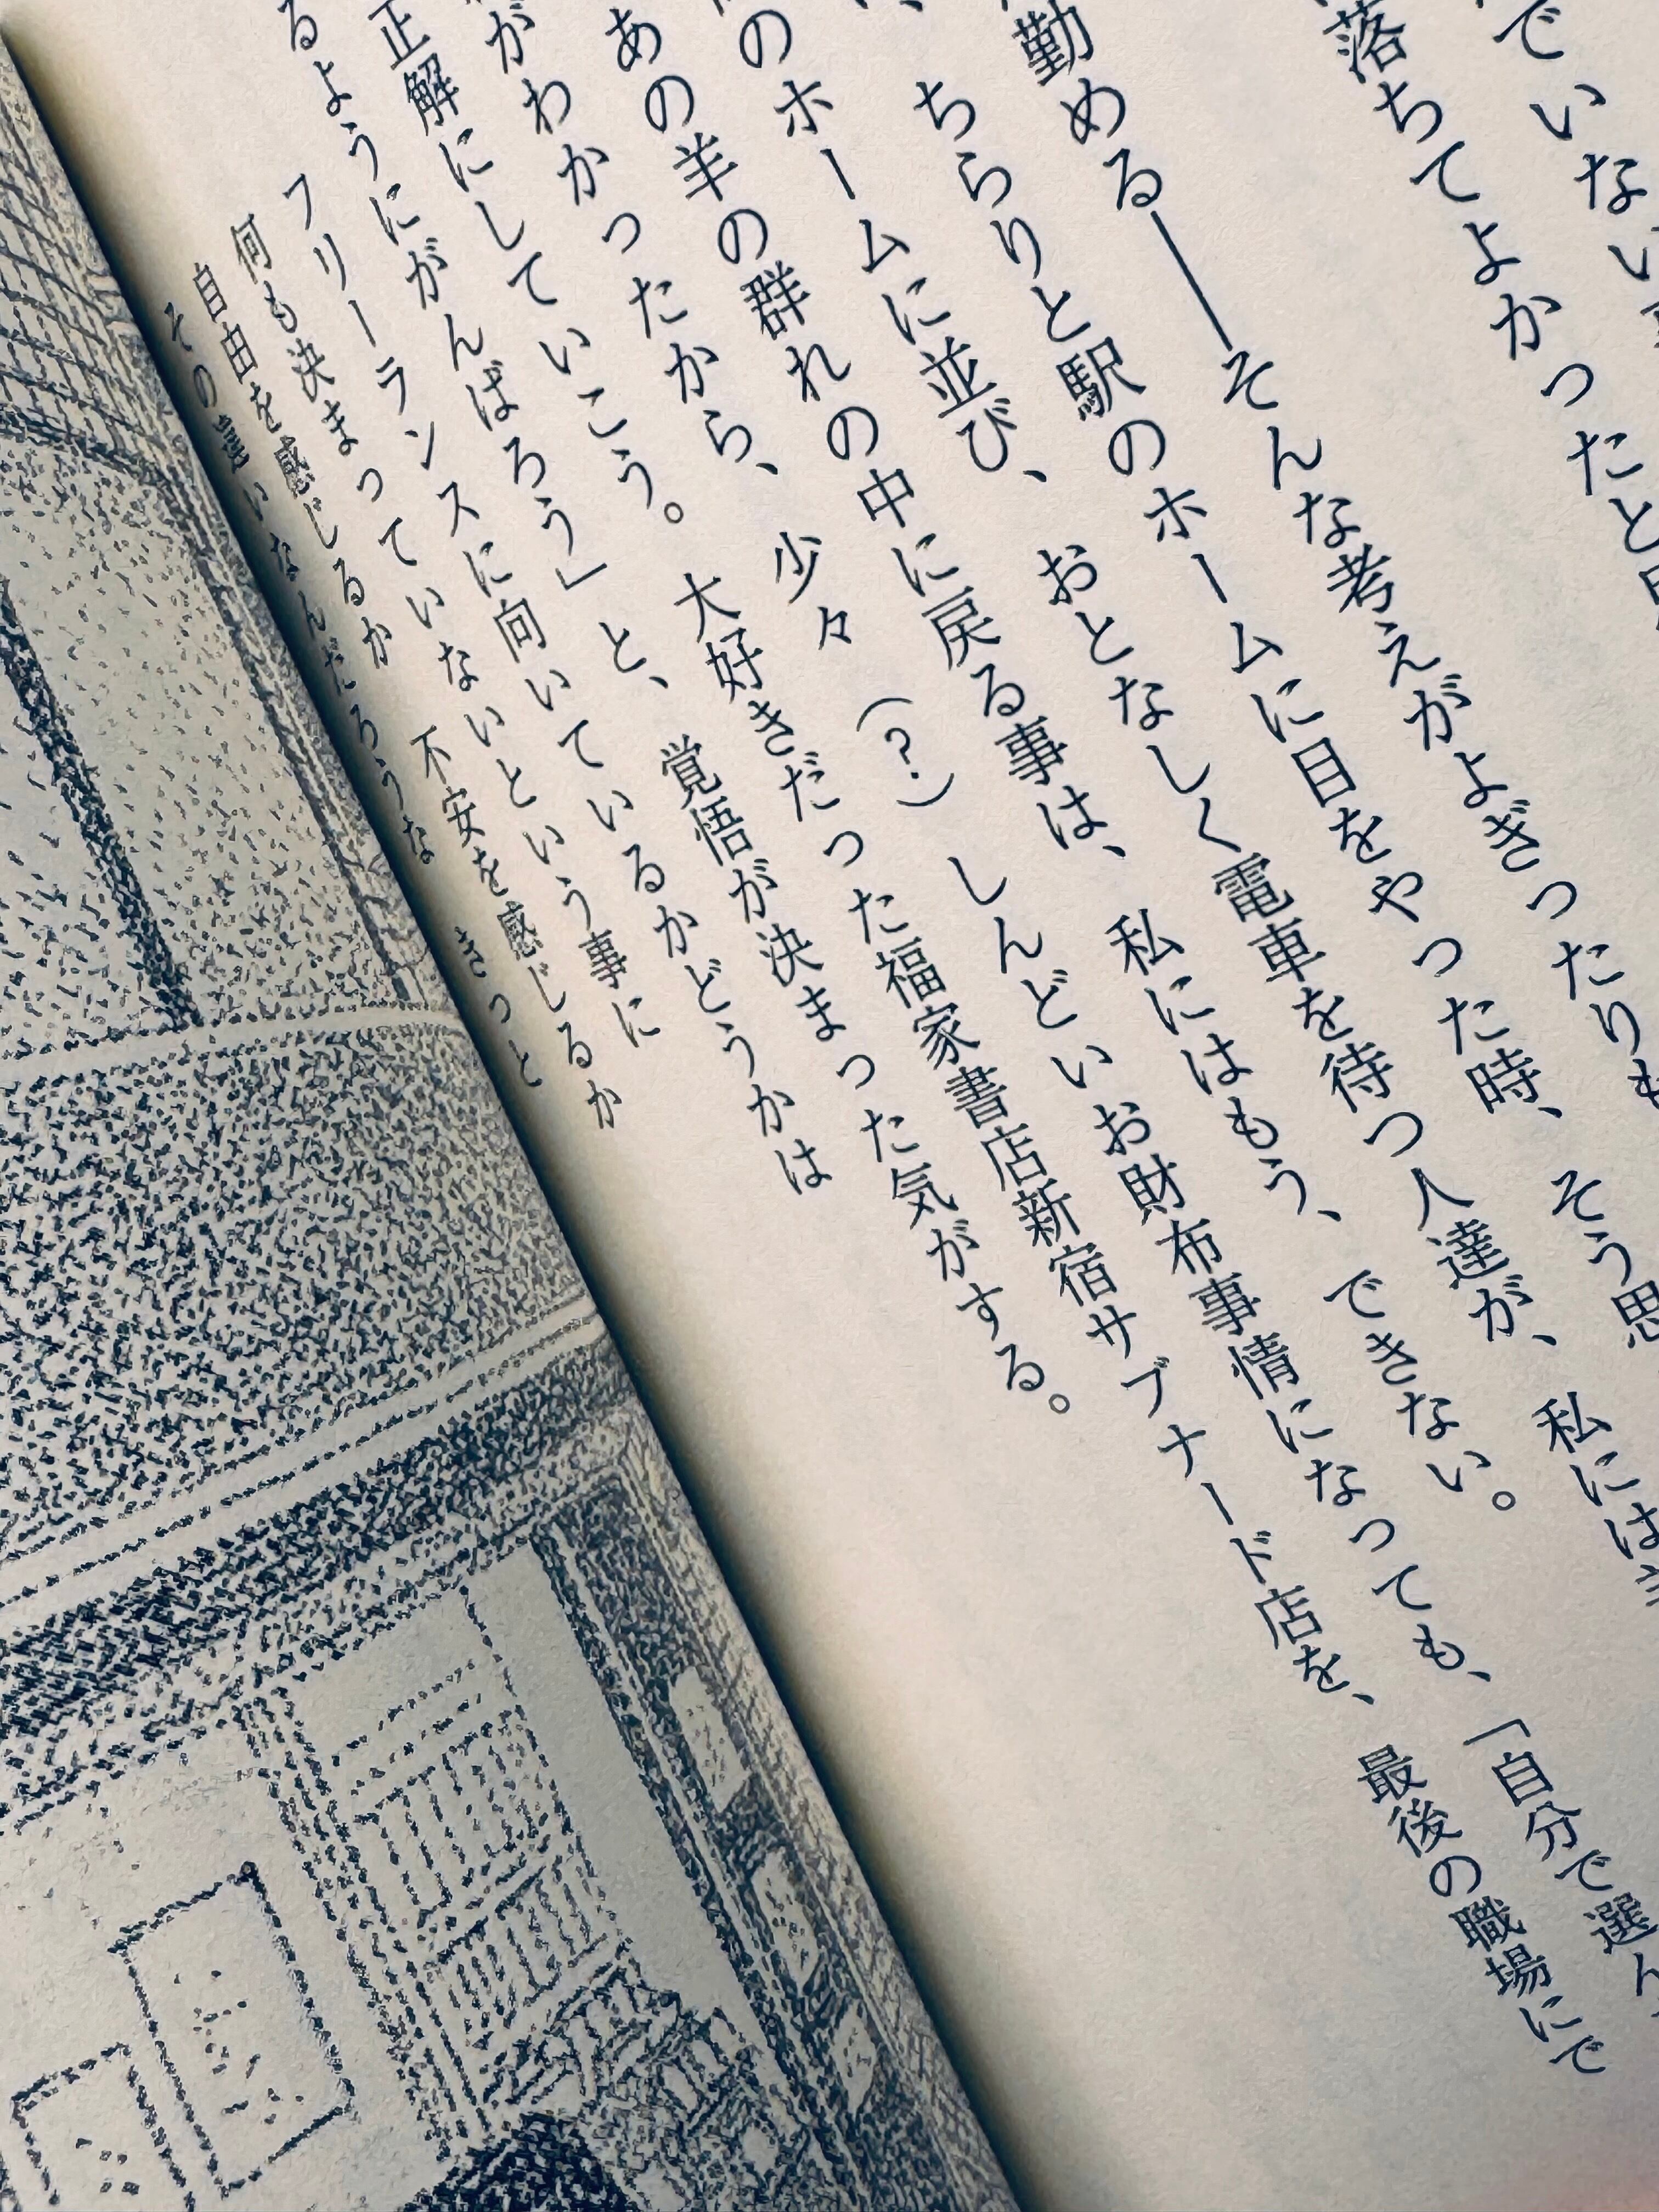 でいない
落ちてよかったと
勤める――そんな考えがよぎったりも
、ちらりと駅のホームに目をやった時、そう思
のホームに並び、おとなしく電車を待つ人達が、私には
あの羊の群れの中に戻る事は、私にはもう、できない。
がわかったから、少々（？）しんどいお財布事情になっても、「自分で選ん
正解にしていこう。大好きだった福家書店新宿サブナード店を、最後の職場にで
るようにがんばろう」と、覚悟が決まった気がする。
フリーランスに向いているかどうかは
何も決まっていないという事に
自由を感じるか　不安を感じるか
その違いなんだろうな　きっと